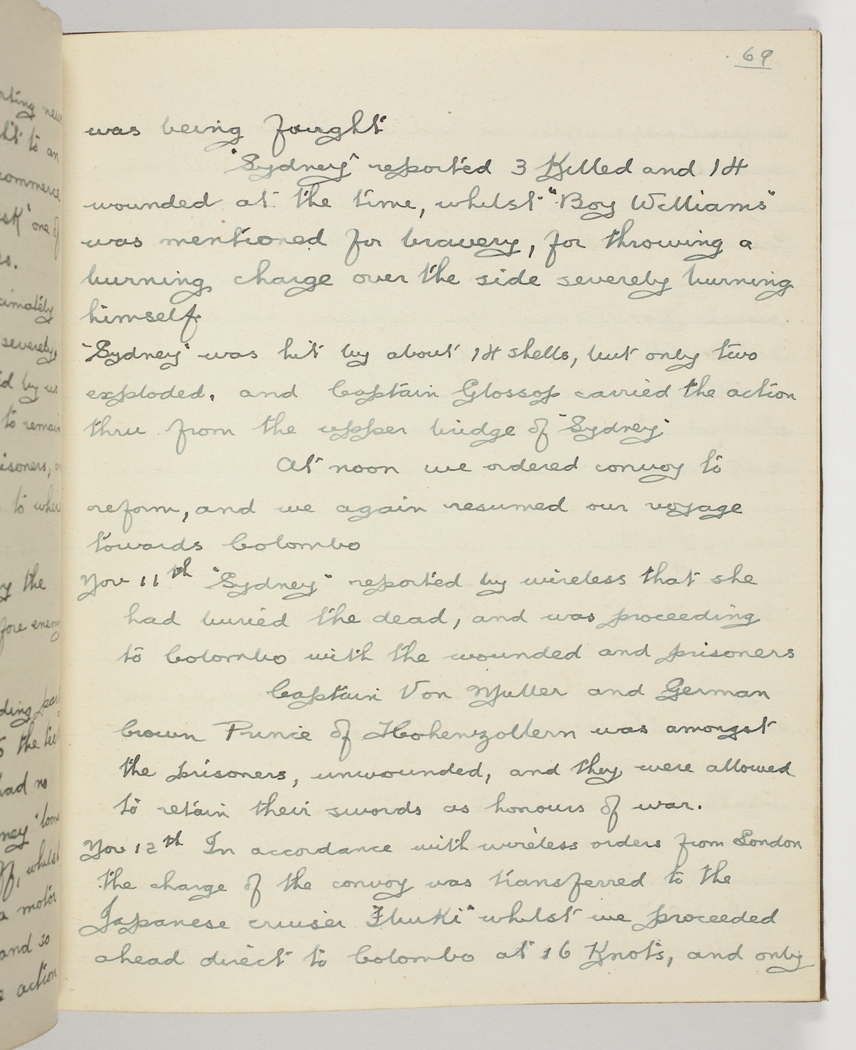 69
was being fought
"Sydney" reported 3 Killed and 14
wounded at the time, whilst "Boy Williams"
was mentioned for bravery, for throwing a
burning charge over the side severely burning
himself.
"Sydney" was hit by about 14 shells, but only two
exploded, and Captain Glossop carried the action
thru from the upper bridge of "Sydney"
At noon we ordered convoy to
reform, and we again resumed our voyage
towards Colombo
Nov 11th "Sydney" reported by wireless that she
had buried the dead, and was proceeding
to Colombo with the wounded and prisoners
Captain Von Muller and German
Crown Prince of Hohenzollern was amongst
the prisoners, unwounded, and they were allowed
to retain their swords as honours of war.
Nov 12th In accordance with wireless orders from London
the charge of the convoy was transferred to the
Japanese cruiser "Ibuki" whilst we proceeded
ahead direct to Colombo at 16 Knots, and only